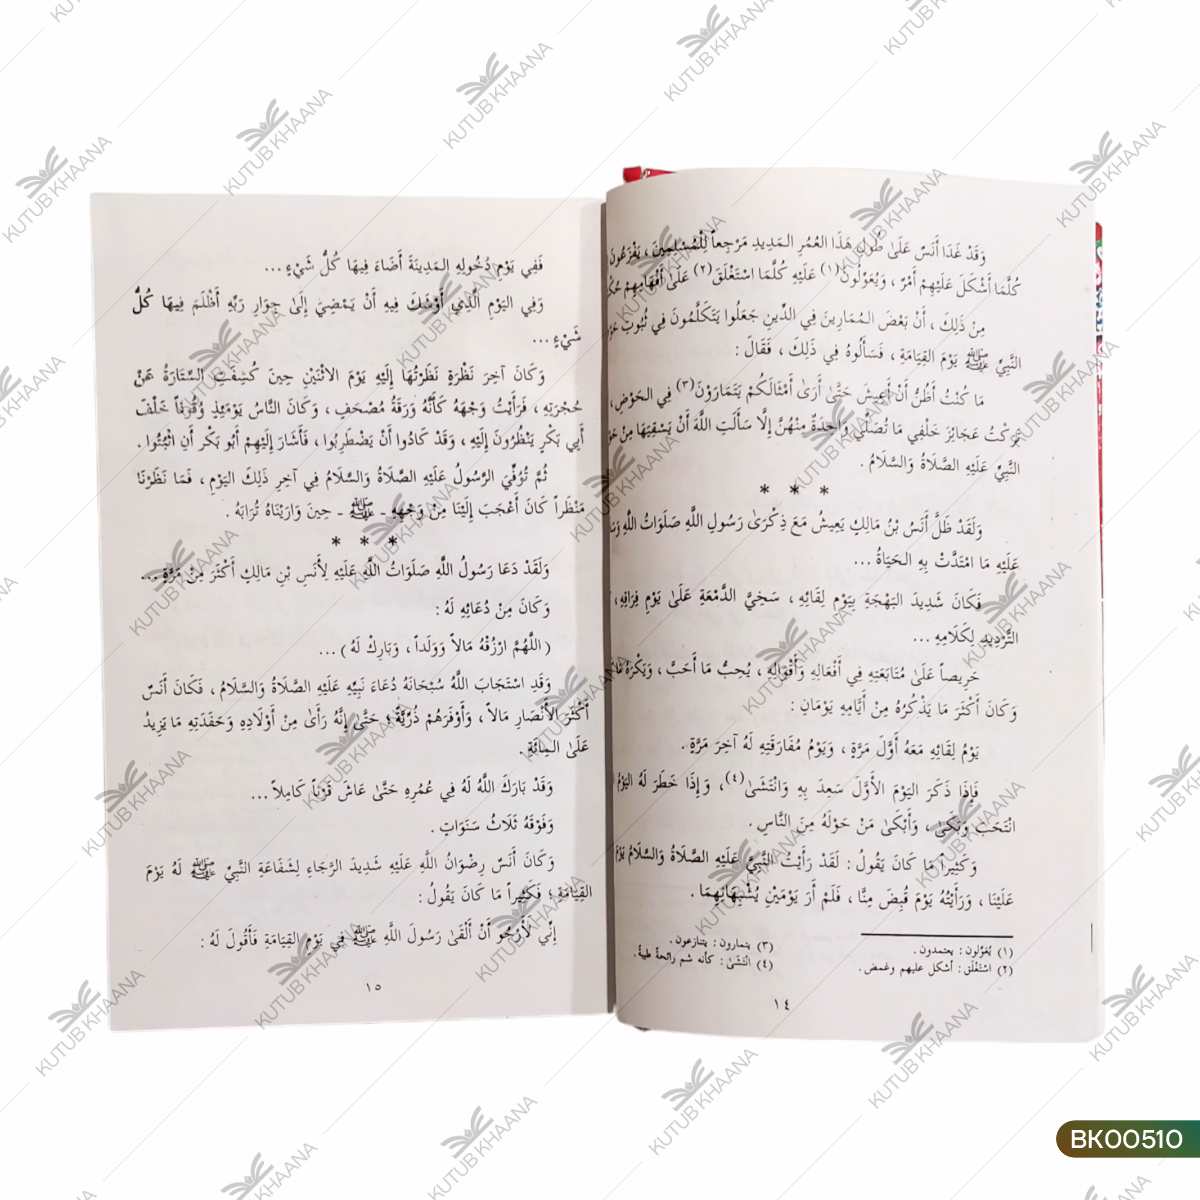 وَقَدْ غَدَا أَنَسٌ عَلَىٰ طُولِ هَذَا العُمُرِ المَدِيدِ مَرْجِعاً لِلْمُسْلِمِينَ ، يَفْزَعُونَ
كُلَّمَا أَشْكَلَ عَلَيْهِمْ أَمْرٌ ، وَيُعَوِّلُونَ(١) عَلَيْهِ كُلَّمَا اسْتَغْلَقَ(٢) عَلَىٰ أَفْهَامِهِمْ
مِنْ ذَلِكَ ، أَنَّ بَعْضَ المُمَارِينَ فِي الدِّينِ جَعَلُوا يَتَكَلَّمُونَ فِي ثُبُوتِ
النَّبِيِّ ﷺ يَوْمَ القِيَامَةِ ، فَسَأَلُوهُ فِي ذَلِكَ ، فَقَالَ :
مَا كُنْتُ أَظُنُّ أَنْ أَعِيشَ حَتَّىٰ أَرَىٰ أَمْثَالَكُمْ يَتَمَارَوْنَ(٣) فِي الحَوْضِ ،
تَرَكْتُ عَجَائِزَ خَلْفِي مَا تُصَلِّي وَاحِدَةٌ مِنْهُنَّ إِلَّا سَأَلَتِ اللَّهَ أَنْ يَسْقِيَهَا مِنْ
النَّبِيِّ عَلَيْهِ الصَّلَاةُ وَالسَّلَامُ .
* * *
وَلَقَدْ ظَلَّ أَنَسُ بْنُ مَالِكٍ يَعِيشُ مَعَ ذِكْرَىٰ رَسُولِ اللَّهِ صَلَوَاتُ اللَّهِ
عَلَيْهِ مَا امْتَدَّتْ بِهِ الحَيَاةُ ...
فَكَانَ شَدِيدَ البَهْجَةِ بِيَوْمِ لِقَائِهِ ، سَخِيَّ الدَّمْعَةِ عَلَىٰ يَوْمِ فِرَاقِهِ ،
التَّرْدِيدِ لِكَلَامِهِ ...
حَرِيصاً عَلَىٰ مُتَابَعَتِهِ فِي أَفْعَالِهِ وَأَقْوَالِهِ ، يُحِبُّ مَا أَحَبَّ ، وَيَكْرَهُ
وَكَانَ أَكْثَرَ مَا يَذْكُرُهُ مِنْ أَيَّامِهِ يَوْمَانِ :
يَوْمُ لِقَائِهِ مَعَهُ أَوَّلَ مَرَّةٍ ، وَيَوْمُ مُفَارَقَتِهِ لَهُ آخِرَ مَرَّةٍ .
فَإِذَا ذَكَرَ اليَوْمَ الأَوَّلَ سَعِدَ بِهِ وَانْتَشَىٰ(٤)، وَإِذَا خَطَرَ لَهُ اليَوْمُ
انْتَحَبَ وَبَكَىٰ ، وَأَبْكَىٰ مَنْ حَوْلَهُ مِنَ النَّاسِ .
وَكَثِيراً مَا كَانَ يَقُولُ : لَقَدْ رَأَيْتُ النَّبِيَّ عَلَيْهِ الصَّلَاةُ وَالسَّلَامُ يَوْمَ
عَلَيْنَا ، وَرَأَيْتُهُ يَوْمَ قُبِضَ مِنَّا ، فَلَمْ أَرَ يَوْمَيْنِ يُشْبِهَانِهِمَا .
(١) يُعَوِّلُون : يعتمدون .
(٢) اسْتَغْلَق : أشكل عليهم وغمض .
(٣) يتمارون : يتنازعون .
(٤) انْتَشَىٰ : كأنه شم رائحةً طيبةً .
١٤
فَفِي يَوْمِ دُخُولِهِ المَدِينَةَ أَضَاءَ فِيهَا كُلُّ شَيْءٍ ...
وَفِي اليَوْمِ الَّذِي أَوْشَكَ فِيهِ أَنْ يَمْضِيَ إِلَىٰ جِوَارِ رَبِّهِ أَظْلَمَ فِيهَا كُلُّ
شَيْءٍ ...
وَكَانَ آخِرَ نَظْرَةٍ نَظَرْتُهَا إِلَيْهِ يَوْمَ الاثْنَيْنِ حِينَ كُشِفَتِ السِّتَارَةُ عَنْ
حُجْرَتِهِ ، فَرَأَيْتُ وَجْهَهُ كَأَنَّهُ وَرَقَةُ مُصْحَفٍ ، وَكَانَ النَّاسُ يَوْمَئِذٍ وُقُوفاً خَلْفَ
أَبِي بَكْرٍ يَنْظُرُونَ إِلَيْهِ ، وَقَدْ كَادُوا أَنْ يَضْطَرِبُوا ، فَأَشَارَ إِلَيْهِمْ أَبُو بَكْرٍ أَنِ اثْبُتُوا .
ثُمَّ تُوُفِّيَ الرَّسُولُ عَلَيْهِ الصَّلَاةُ وَالسَّلَامُ فِي آخِرِ ذَلِكَ اليَوْمِ ، فَمَا نَظَرْنَا
مَنْظَراً كَانَ أَعْجَبَ إِلَيْنَا مِنْ وَجْهِهِ ـ ﷺ ـ حِينَ وَارَيْنَاهُ تُرَابَهُ .
* * *
وَلَقَدْ دَعَا رَسُولُ اللَّهِ صَلَوَاتُ اللَّهِ عَلَيْهِ لِأَنَسِ بْنِ مَالِكٍ أَكْثَرَ مِنْ مَرَّةٍ ...
وَكَانَ مِنْ دُعَائِهِ لَهُ :
( اللَّهُمَّ ارْزُقْهُ مَالاً وَوَلَداً ، وَبَارِكْ لَهُ ) ...
وَقَدِ اسْتَجَابَ اللَّهُ سُبْحَانَهُ دُعَاءَ نَبِيِّهِ عَلَيْهِ الصَّلَاةُ وَالسَّلَامُ ، فَكَانَ أَنَسٌ
أَكْثَرَ الأَنْصَارِ مَالاً ، وَأَوْفَرَهُمْ ذُرِّيَّةً ؛ حَتَّىٰ إِنَّهُ رَأَىٰ مِنْ أَوْلَادِهِ وَحَفَدَتِهِ مَا يَزِيدُ
عَلَىٰ المِائَةِ .
وَقَدْ بَارَكَ اللَّهُ لَهُ فِي عُمُرِهِ حَتَّىٰ عَاشَ قَرْناً كَامِلاً ...
وَفَوْقَهُ ثَلَاثُ سَنَوَاتٍ .
وَكَانَ أَنَسٌ رِضْوَانُ اللَّهِ عَلَيْهِ شَدِيدَ الرَّجَاءِ لِشَفَاعَةِ النَّبِيِّ ﷺ لَهُ يَوْمَ
القِيَامَةِ ؛ فَكَثِيراً مَا كَانَ يَقُولُ :
إِنِّي لَأَرْجُو أَنْ أَلْقَىٰ رَسُولَ اللَّهِ ﷺ فِي يَوْمِ القِيَامَةِ فَأَقُولَ لَهُ :
١٥
KUTUB KHAANA
BK00510